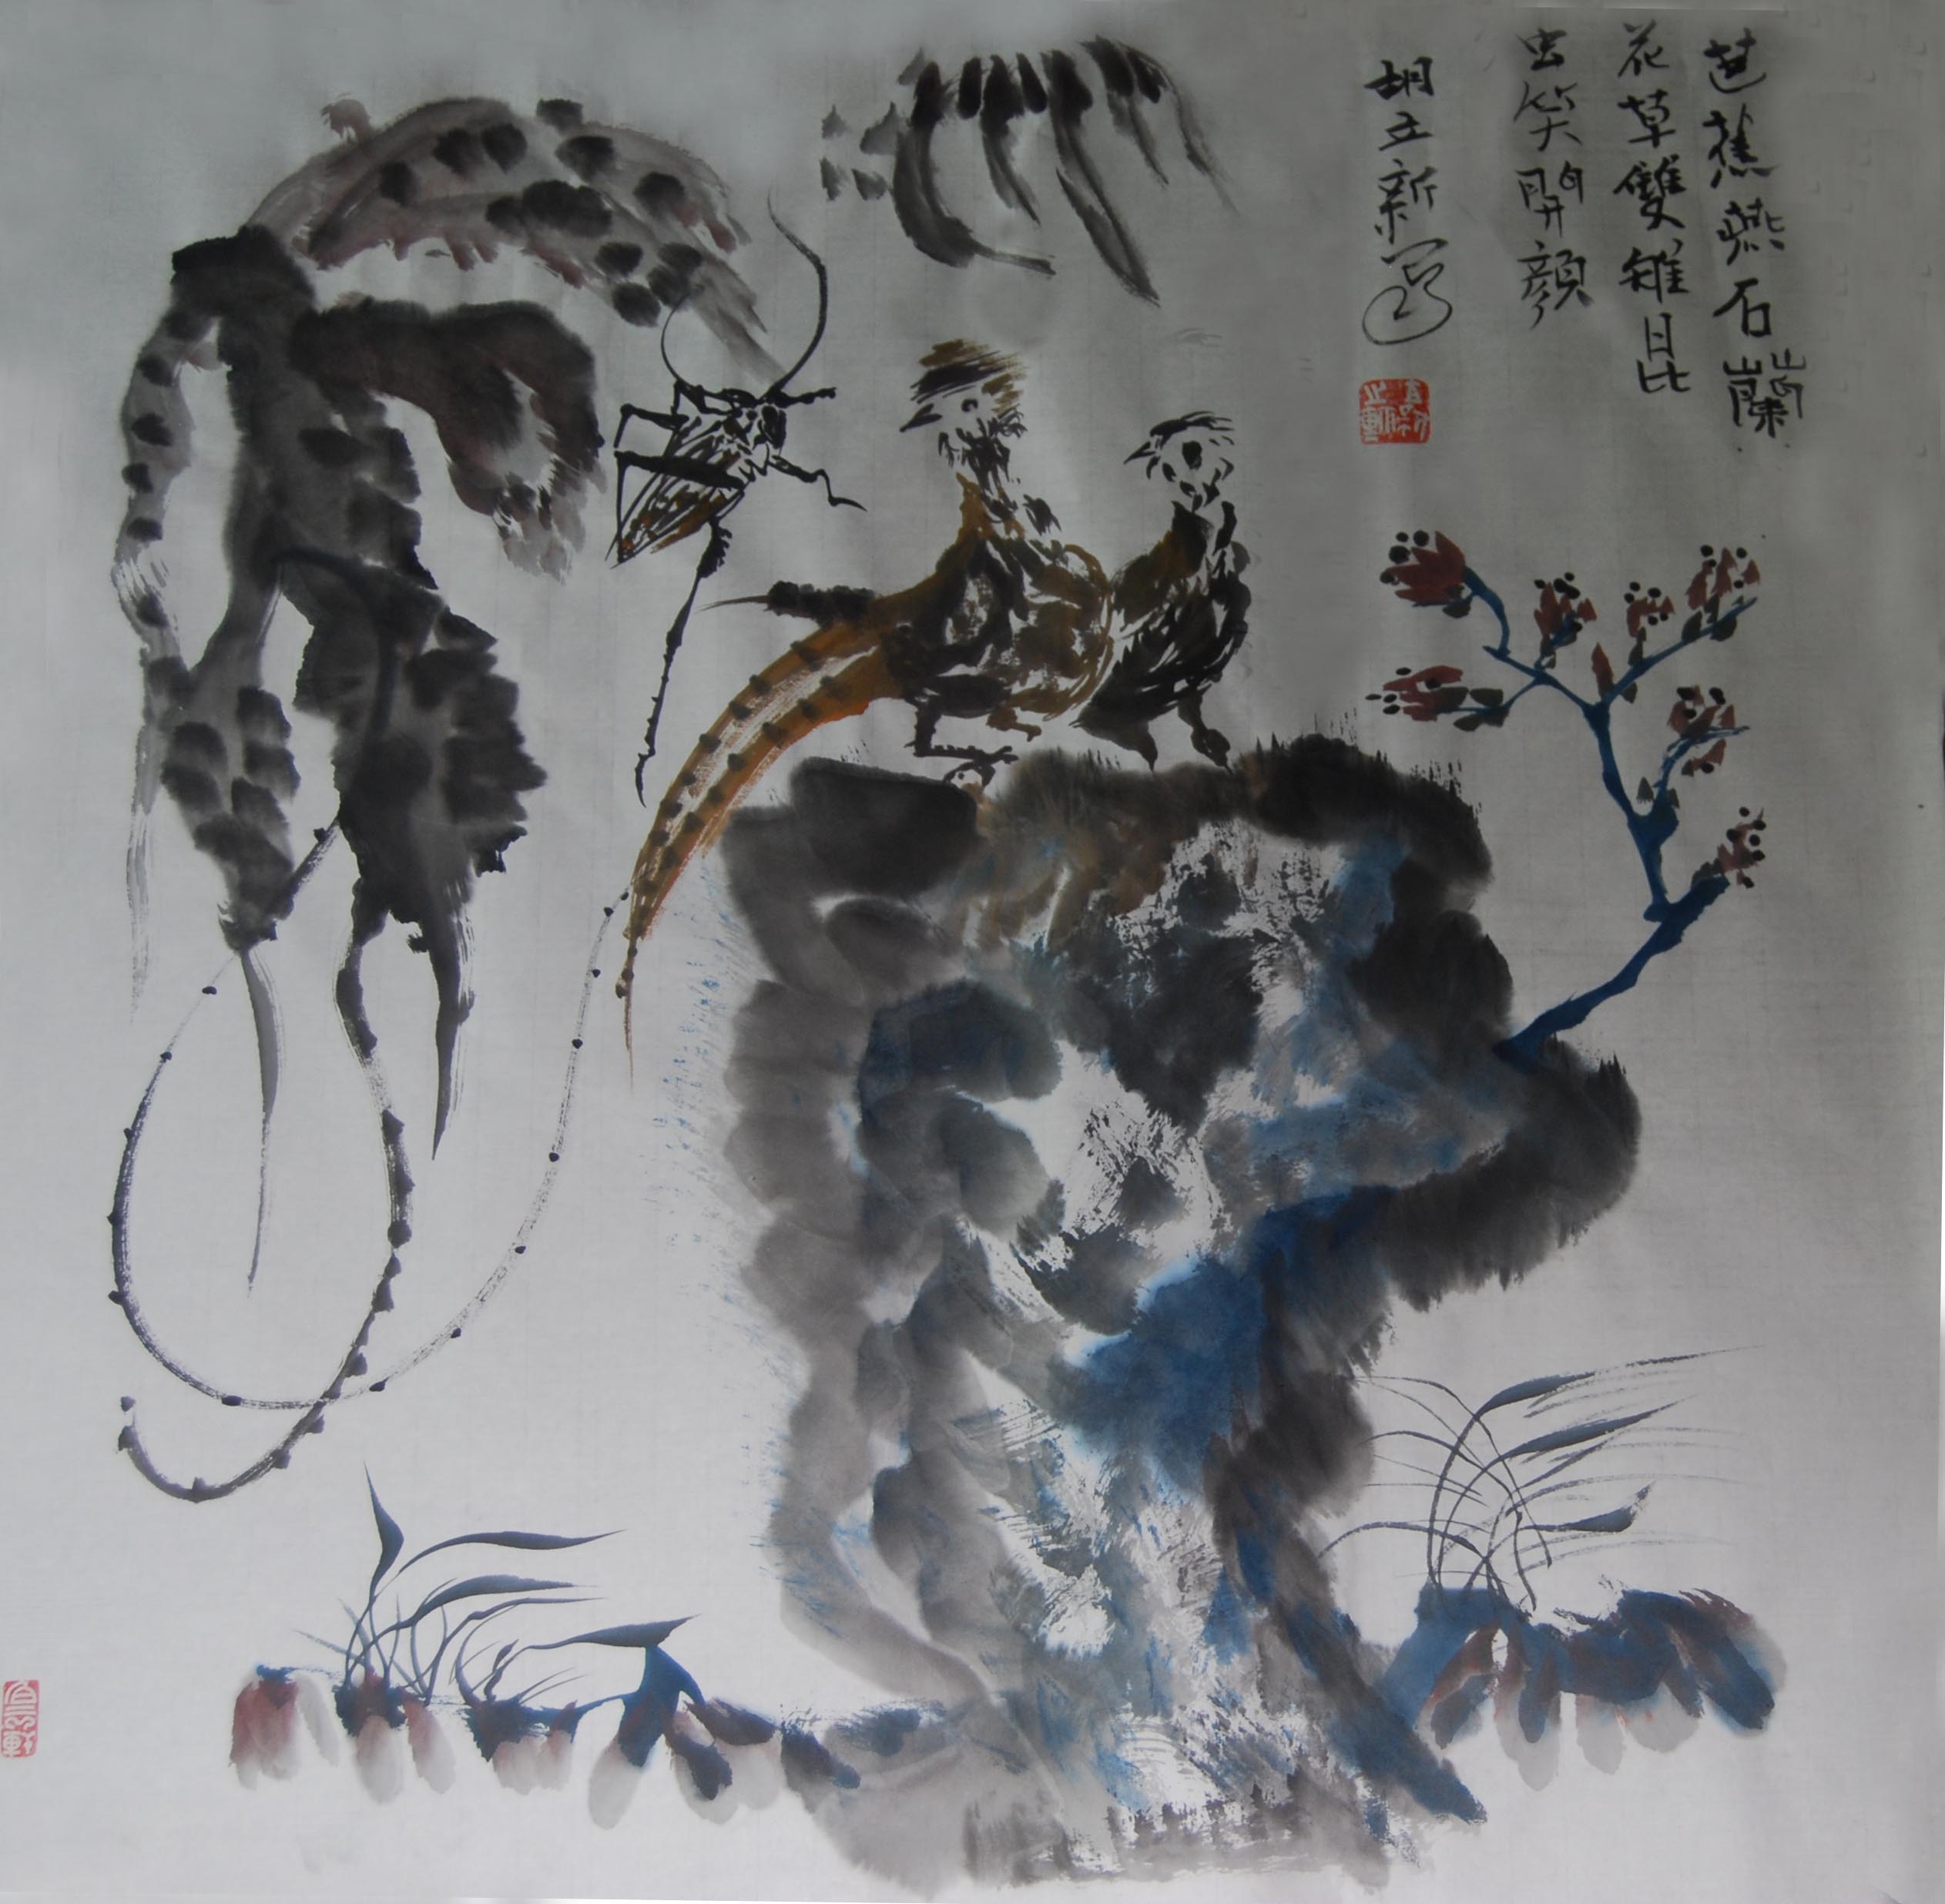 芭蕉燕石蘭
花草雙雉昆
虫笑開顏
胡立新写